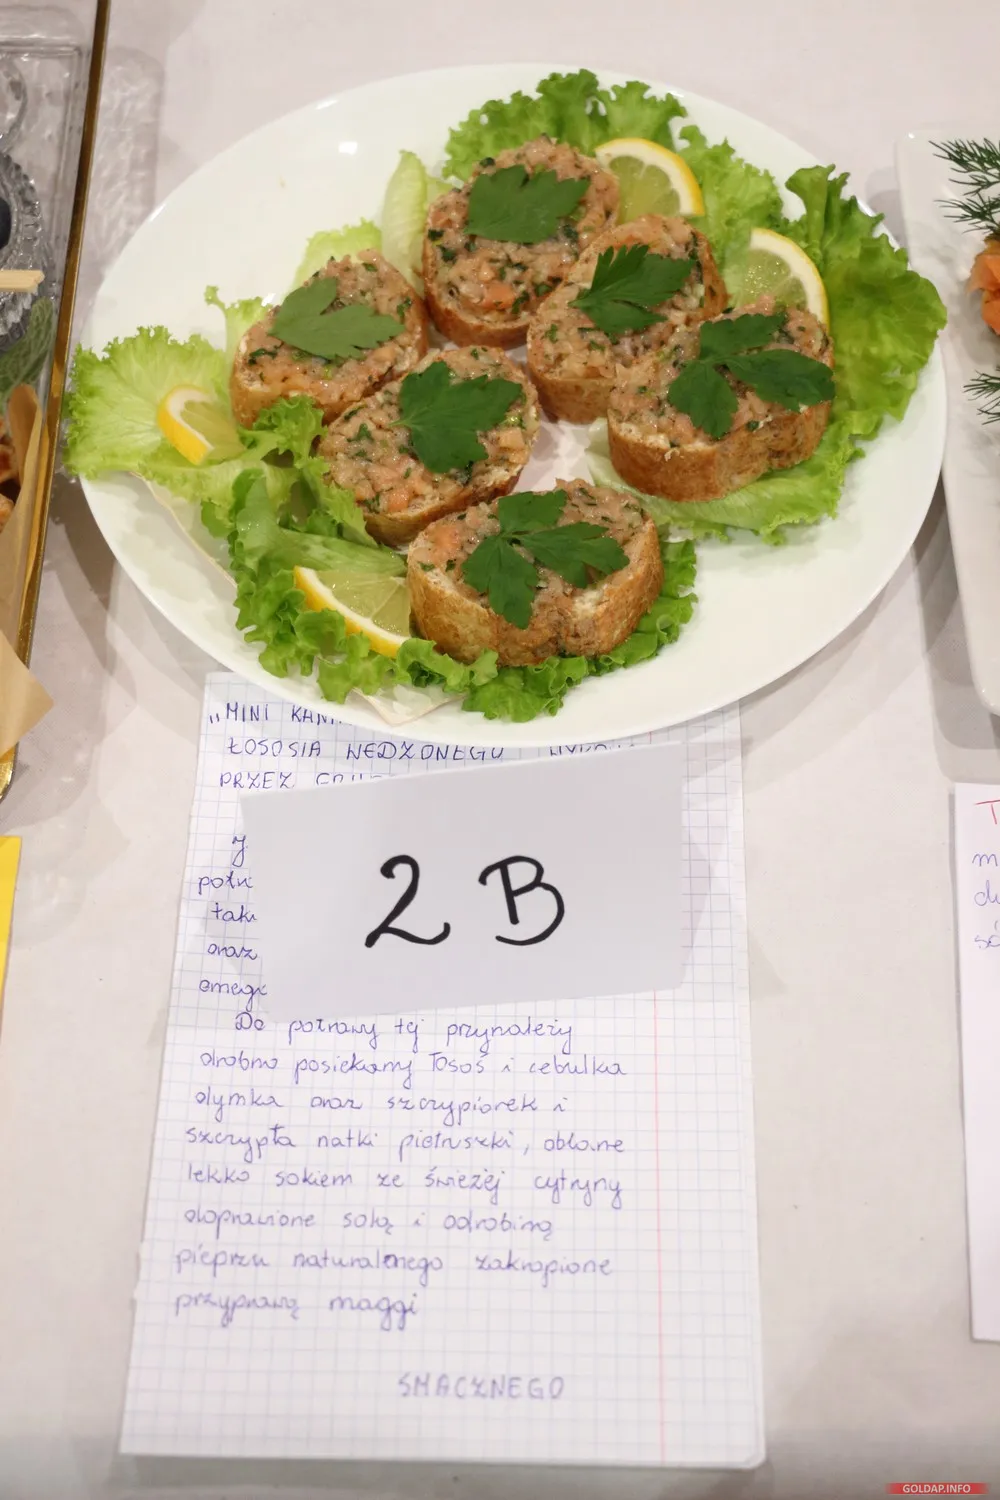 „MINI
ŁOSOSIA WĘDZONEGO
PRZEZ
2 B
oraz
Do potrawy tej przynależy
drobno posiekamy łosoś i cebulka
dymka oraz szczypiorek i
szczypta natki pietruszki, oblane
lekko sokiem ze świeżej cytryny
doprawione solą i odrobiną
pieprzu naturalnego zakropione
przyprawą maggi
SMACZNEGO
GOLDAP.INFO